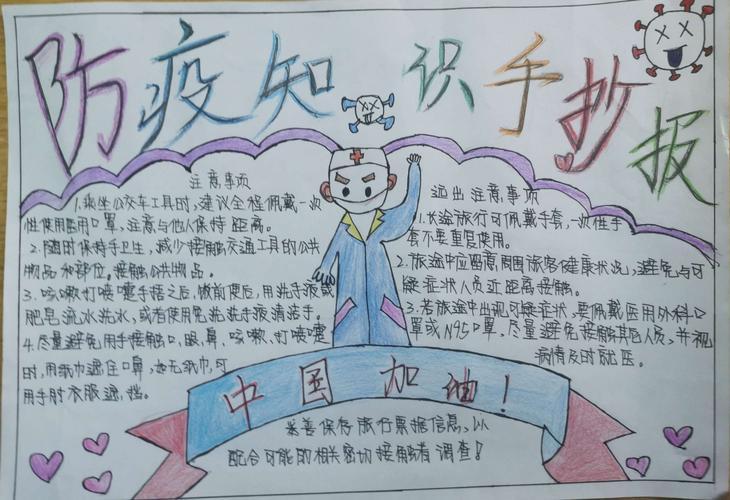 防疫知识手抄报
注意事项
1.乘坐公交车工具时,建议全程佩戴一次
性使用医用口罩,注意与他人保持距离。
2.随时保持手卫生,减少接触交通工具的公共
物品和部位。接触公共物品。
3.咳嗽打喷嚏手捂之后,饭前便后,用洗手液或
肥皂流水洗水,或者使用免洗洗手液清洁手。
4.尽量避免用手接触口、眼、鼻、咳嗽、打喷嚏
时,用纸巾遮住口鼻,无纸巾,可
用手肘衣服遮挡。
远出注意事项
1.长途旅行可佩戴手套,一次性手
套不要重复使用。
2.旅途中应留离周围旅客健康状况,避免与可
疑症状人员近距离接触。
3.若旅途中出现可疑症状,要佩戴医用外科口
罩或N95口罩,尽量避免接触其他人员,并视
病情及时就医。
中国加油!
妥善保存旅行票据信息,以
配合可能的相关密切接触者调查!